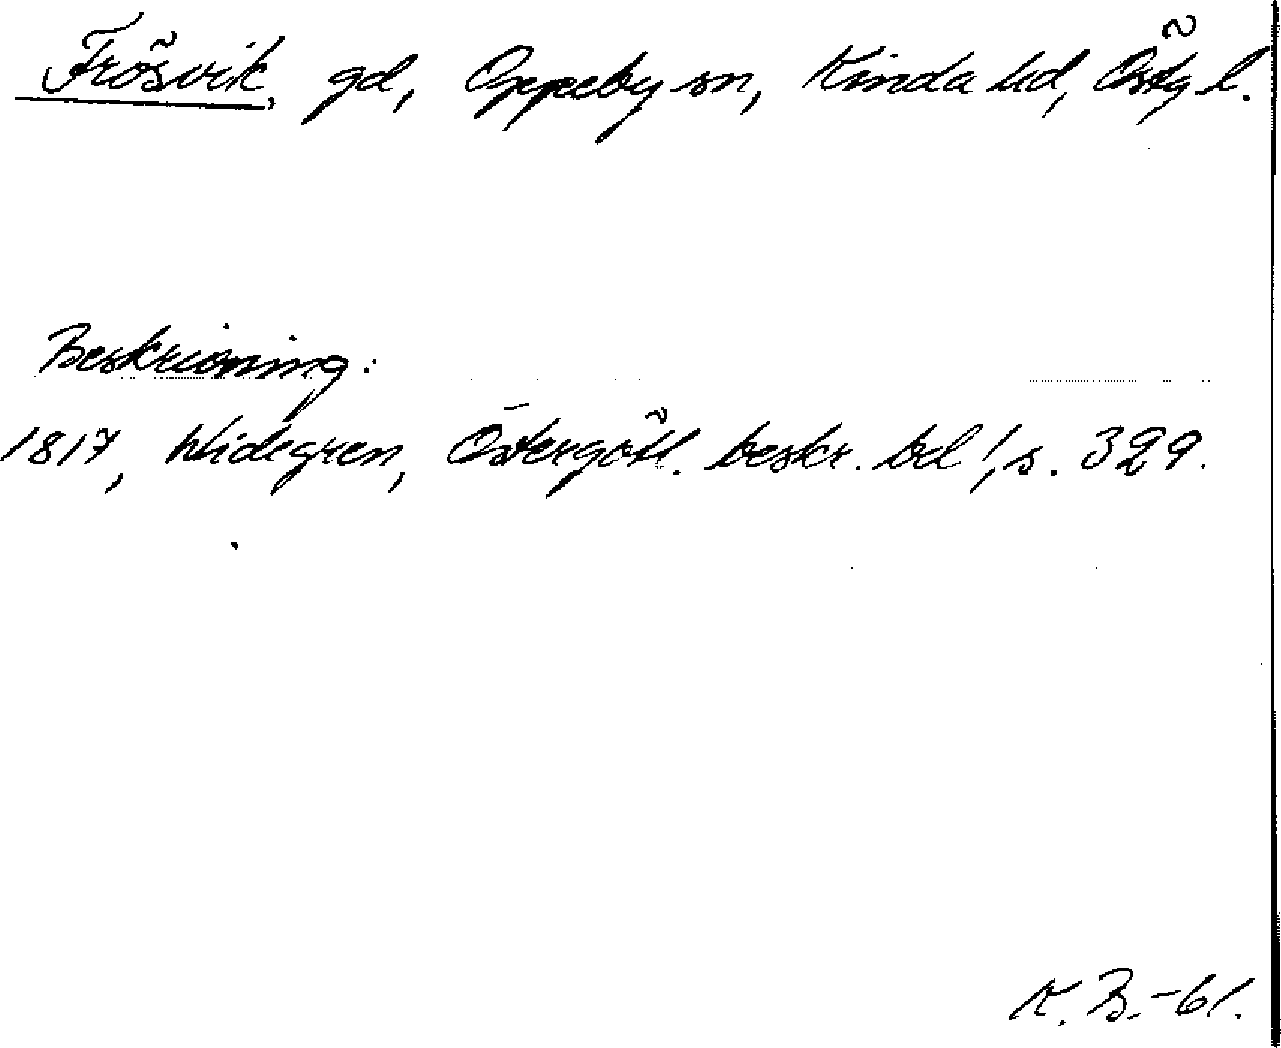 Frösvik, gd, Oppeby sn, Kinda hd, Östg l.
Beskrivning:
1817, Widegren, Östergötl. beskr. bd 1, s. 329.
K. B. -61.